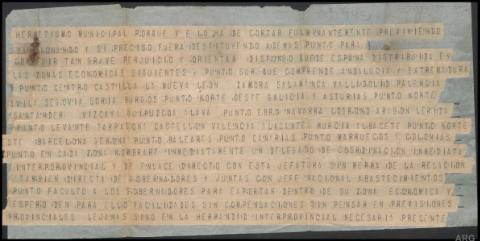 HERMETISMO MUNICIPAL PORQUE V E LO HA DE CORTAR FULMINANTEMENTE PREVINIENDO
Y SI PRECISO FUERA DESTITUYENDO ADEMAS PUNTO PARA
TAN GRAVE PERJUICIO Y ORIENTAR DISPONGO QUEDE ESPAÑA DISTRIBUIDA EN
LAS ZONAS ECONOMICAS SIGUIENTES Y PUNTO SUR QUE COMPRENDE ANDALUCIA Y EXTREMADURA
PUNTO CENTRO CASTILLA LA NUEVA LEON ZAMORA SALAMANCA VALLADOLID PALENCIA
AVILA SEGOVIA SORIA BURGOS PUNTO NORTE OESTE GALICIA Y ASTURIAS PUNTO NORTE
SANTANDER VIZCAYA GUIPUZCOA ALAVA PUNTO EBRO NAVARRA LOGROÑO ARAGON LERIDA
PUNTO LEVANTE TARRAGONA CASTELLON VALENCIA ALICANTE MURCIA ALBACETE PUNTO NORTE
ESTE BARCELONA GERONA PUNTO BALEARES PUNTO CANARIAS PUNTO MARRUECOS Y COLONIAS
PUNTO EN CADA ZONA NOMBRARE INMEDIATAMENTE UN DELEGADO DE COORDINACION INMEDIATA
INTERPROVINCIAL Y ENLACE DIRECTO CON ESTA JEFATURA SIN MERMA DE LA RELACION
TAMBIEN DIRECTA DE GOBERNADORES Y JUNTAS CON JEFE NACIONAL ABASTECIMIENTOS
PUNTO FACULTO A LOS GOBERNADORES PARA EXPORTAR DENTRO DE SU ZONA ECONOMICA Y
ESPERO DEN PARA ELLO FACILIDADES SIN COMPENSACIONES SIN PENSAR EN PREVISIONES
PROVINCIALES LEJANAS SINO EN LA HERMANDAD INTERPROVINCIAL NECESARIA PRESENTE
ARG